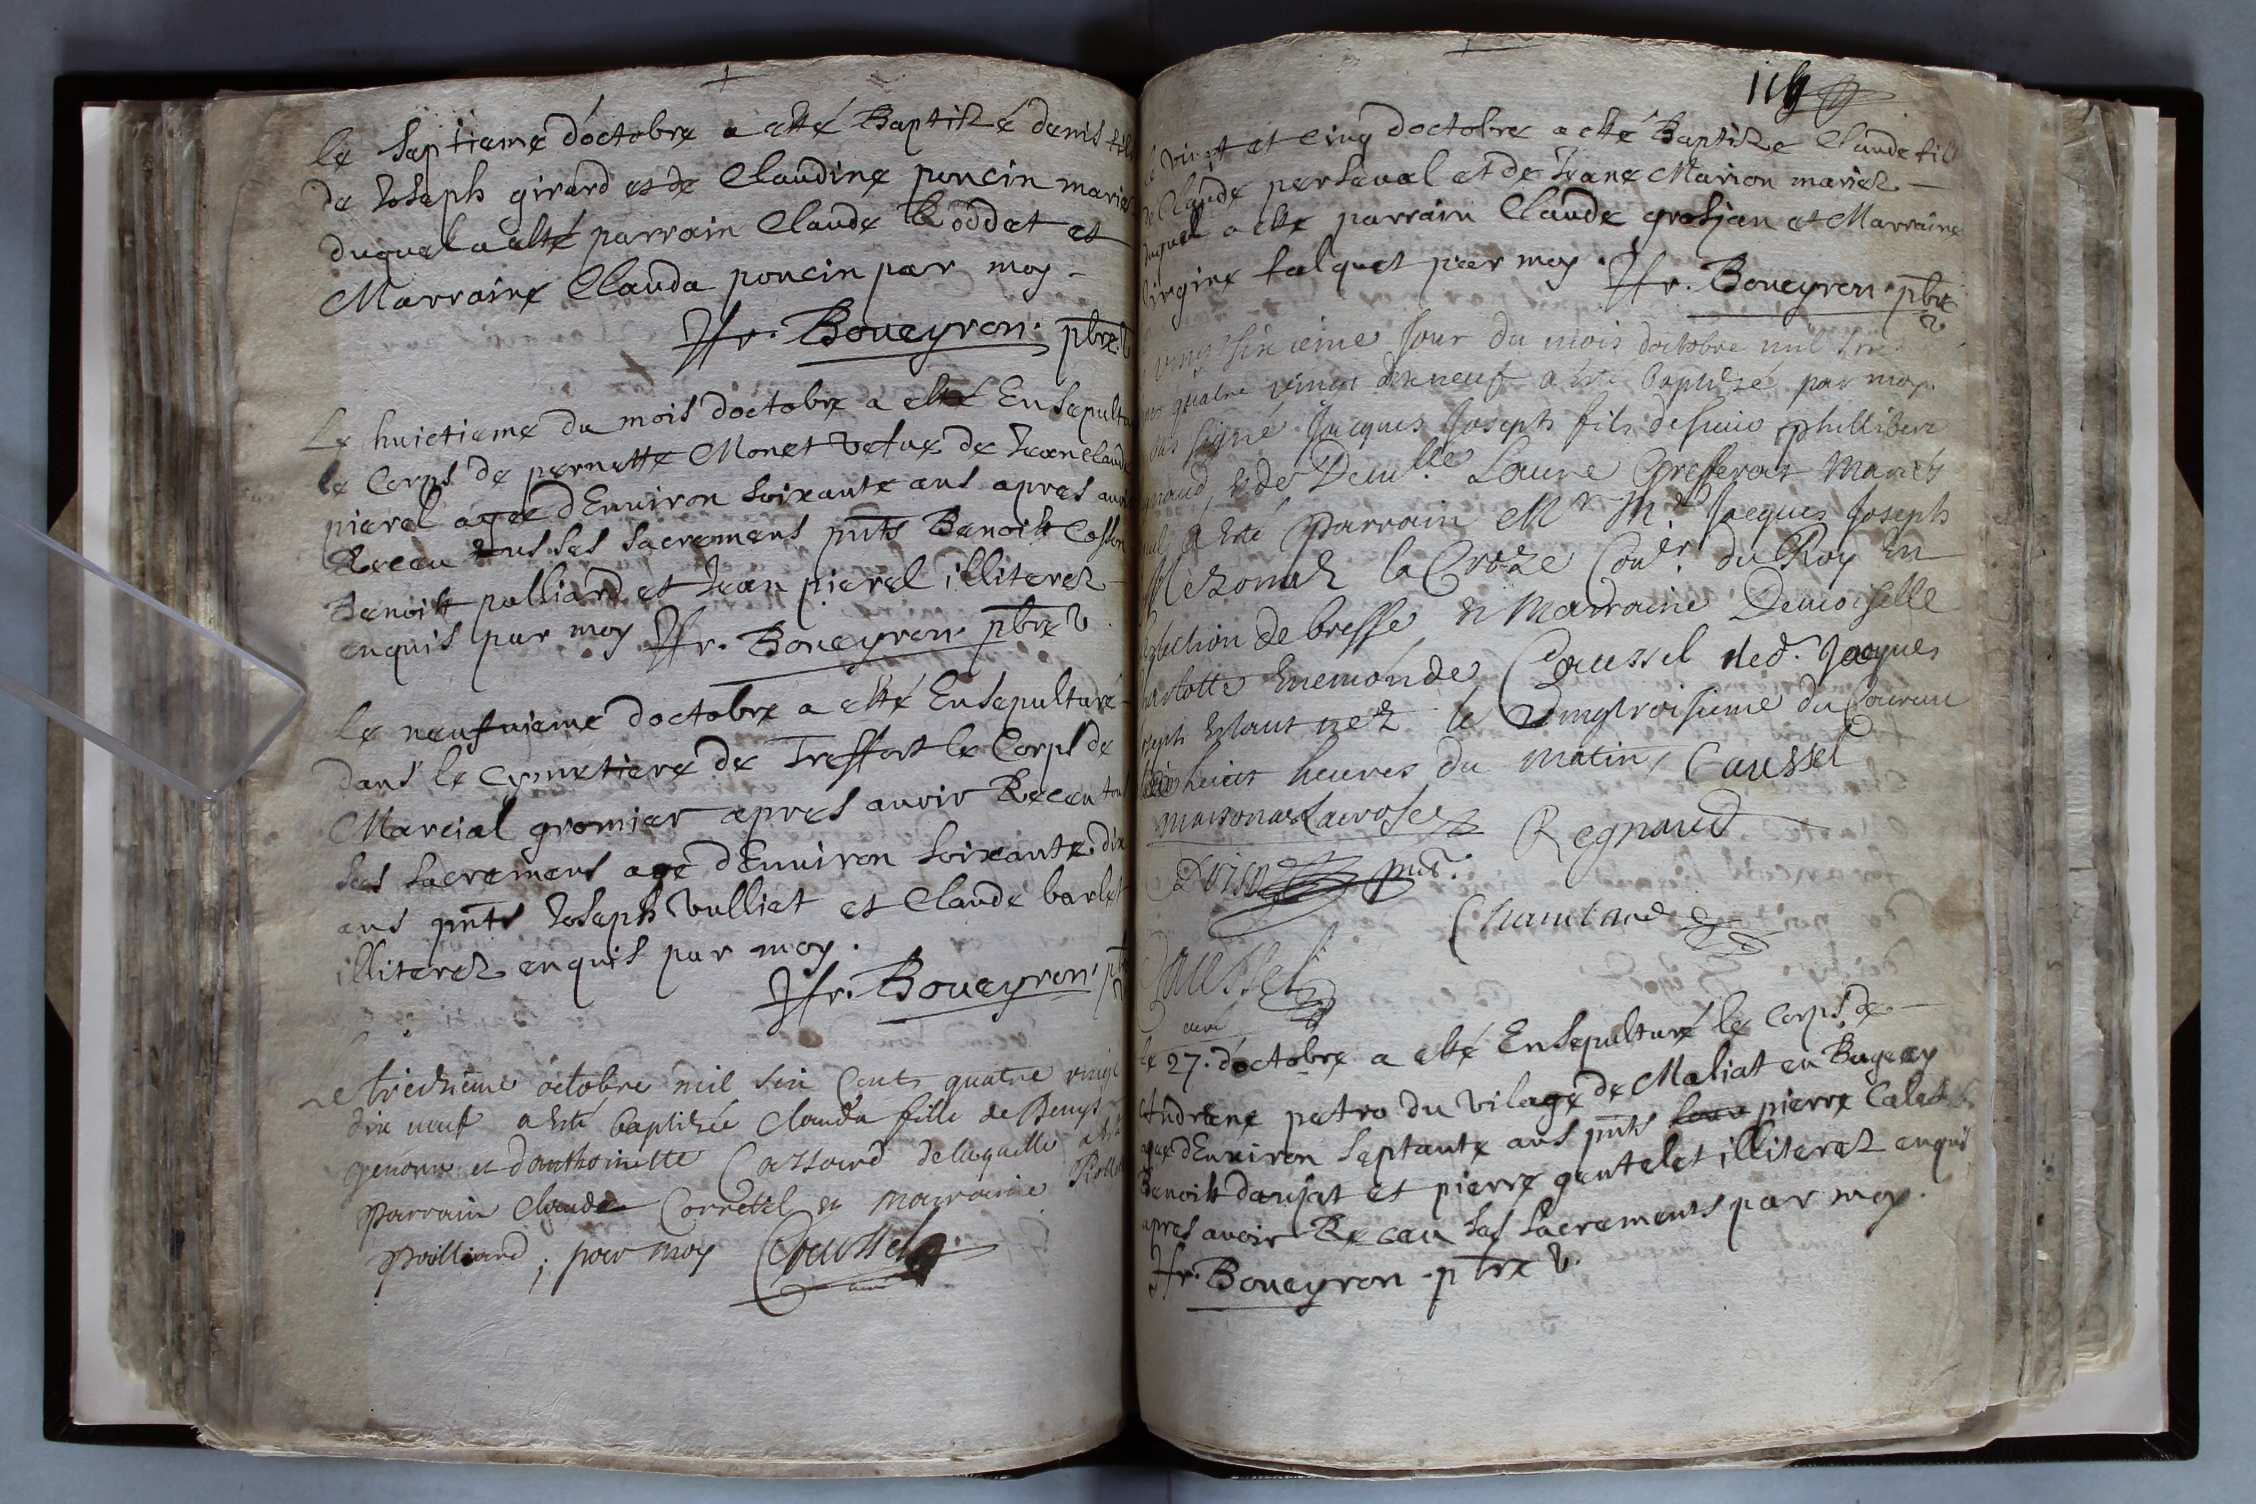 le Septieme doctobre a esté Baptisé denis fils
de Joseph girard et de Claudine poncin mariez
duquel a esté parrain Claude boddet et
Marraine Clauda poncin par moy
Boueyron pbre v
Le huictieme du mois doctobre a esté Ensepultu
le Corps de pernette Monet vefve de Jean Claude
pierel agee dEnviron soixante ans apres avoir
Receu tous ses sacremens pnts Benoist
Benoist palliard et Jean pierel illiterez
enquis par moy Boueyron pbre v
le neufvieme doctobre a esté Ensepulturé
dans le cymetiere de Treffort le Corps de
Marcial gromier apres avoir Receu tous
ses sacremens agé dEnviron soixante dix
ans pnts Joseph vulliet et Claude barlet
illiterez enquis par moy.
Boueyron
le treizieme octobre mil six Cents quatre vingt
dix neuf a esté baptizée Clauda fille de Denys
et danthoinette Cassard de laquelle a esté
parrain Claude Corretel et marraine
Poilliard, par moy Coussel
le vingt et cinq doctobre a esté Baptize Claude fils
de Claude perseval et de Jeane Marion mariez
duquel a esté parrain Claude grosjan et Marraine
virgine falquet par moy.
Boueyron pbre v
vingt sixieme jour du mois doctobre mil six
quatre vingt dix neuf a esté baptizé par moy
signé Jacques Joseph fils de sieur Phillibert
et de Demlle Laure Mariés
a esté parrain Mr Jacques Joseph
la Croze Coner. du Roy En
de bresse et marraine Demoiselle
Enemonde Caussel led. Jacques
Estant nez le vingtroisieme du Courant
huict heures du matin, Caussel
maisonas Lacrose
Regnaud
Chambard
Caussel
le 27. doctobre a esté Ensepulturé le corps de
Andriene petro du vilage de Maliat en Bugeey
agee dEnviron septante ans pnts pierre Calet
Benoist danjat et pierre gantelet illiterez enquis
apres avoir Receu ses sacrements par moy.
Boueyron pbre v.